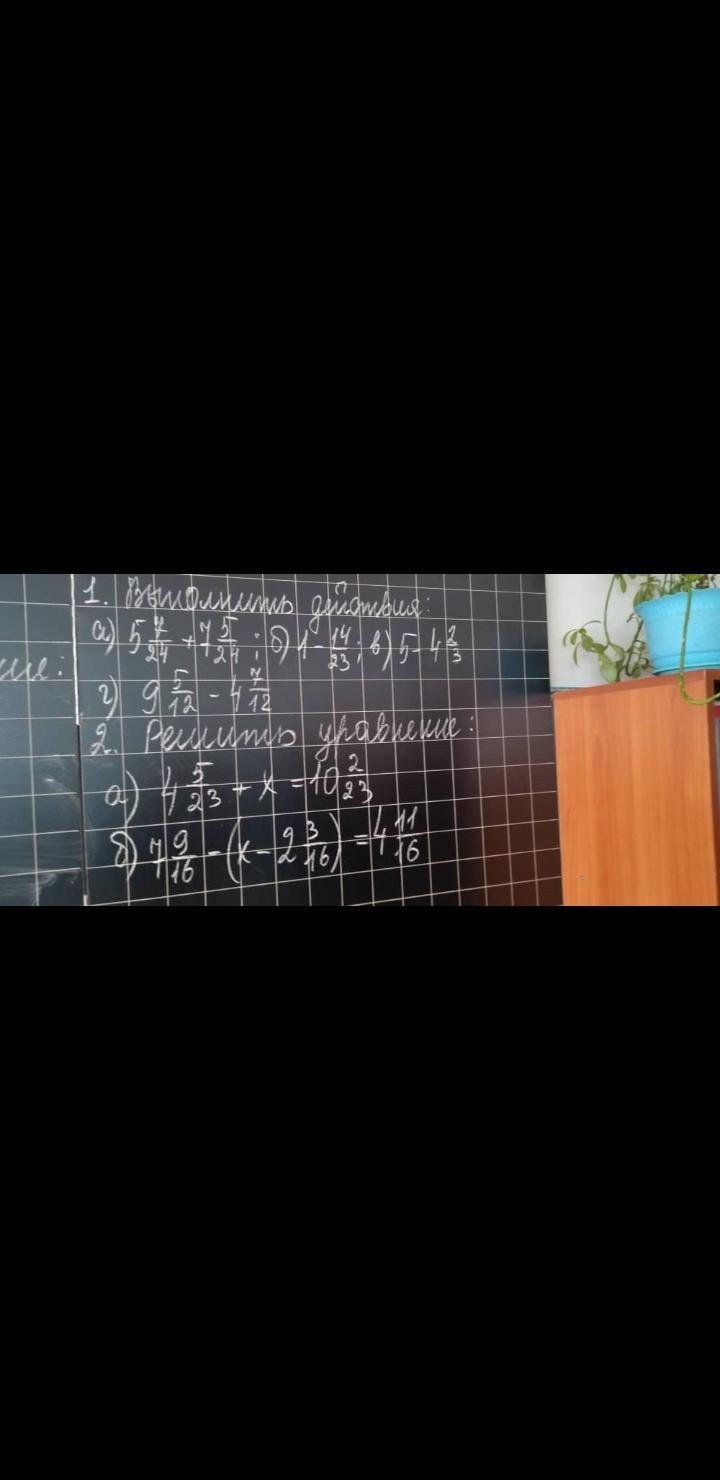 1. Выполнить действия:
а) 5 7/24 + 7 5/24; б) 1 - 14/23; в) 5 - 4 2/3
ие:
г) 9 5/12 - 4 7/12
2. Решить уравнение:
а) 4 5/23 + x = 10 2/23
б) 7 9/16 - (x - 2 3/16) = 4 11/16